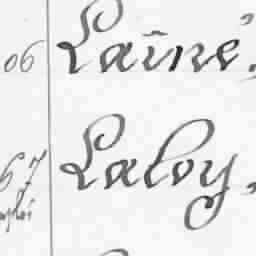 06 Lainé,
67 Laloy,